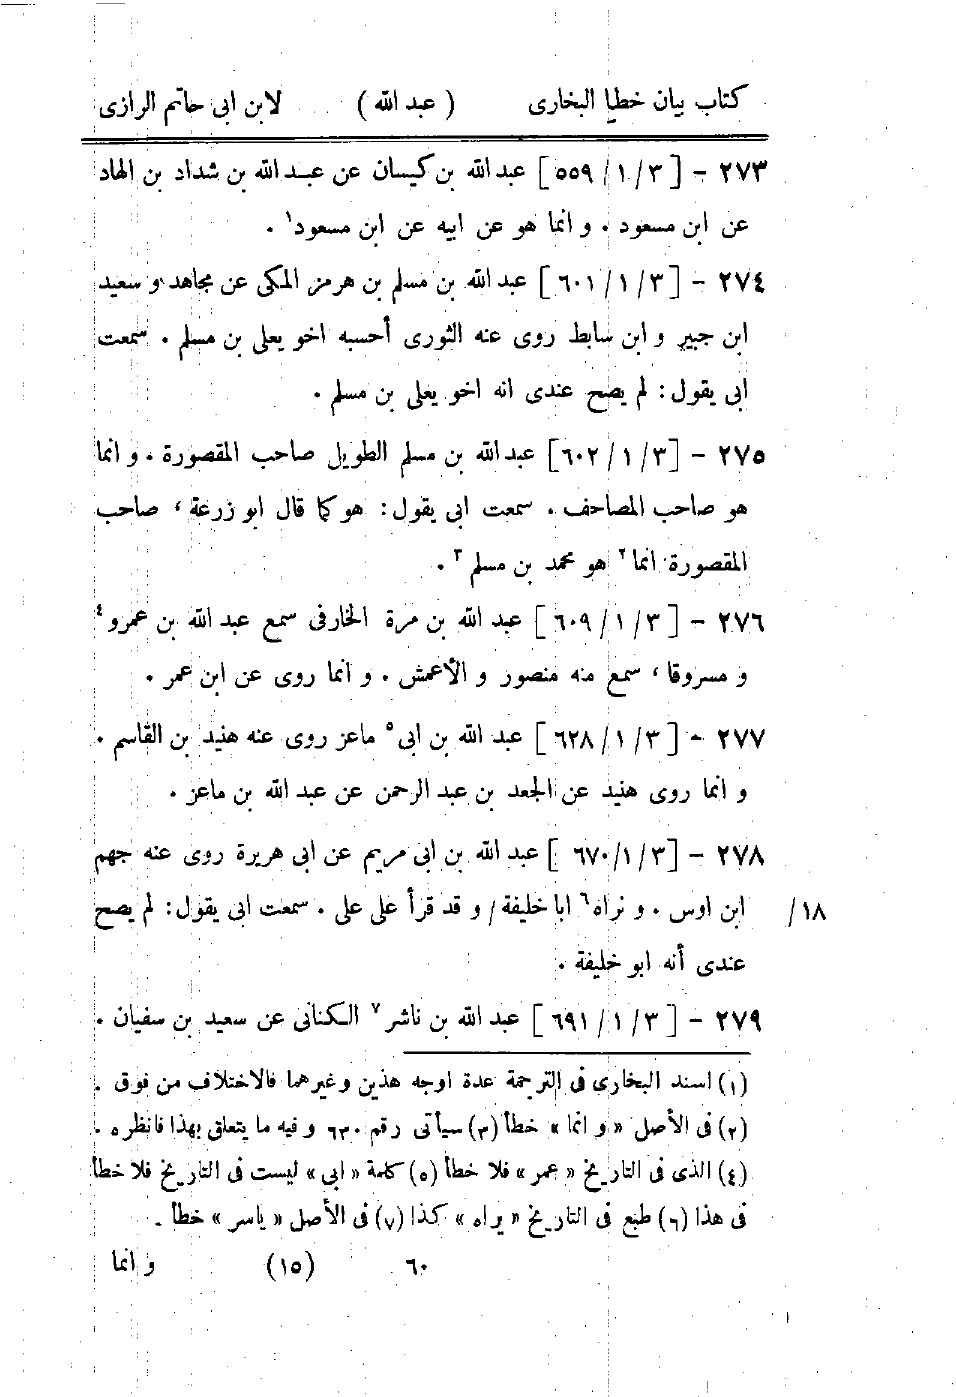 كتاب بيان خطإ البخارى ( عبد الله ) لابن ابى حاتم الرازى
٢٧٣ - [ ٣ / ١ / ٥٥٩ ] عبد الله بن كيسان عن عبد الله بن شداد بن الهاد
عن ابن مسعود . و انما هو عن ابيه عن ابن مسعود١ .
٢٧٤ - [ ٣ / ١ / ٦٠١ ] عبد الله بن مسلم بن هرمز المكى عن مجاهد و سعيد
ابن جبير و ابن سابط روى عنه الثورى أحسبه اخو يعلى بن مسلم . سمعت
ابى يقول : لم يصح عندى انه اخو يعلى بن مسلم .
٢٧٥ - [ ٣ / ١ / ٦٠٢ ] عبد الله بن مسلم الطويل صاحب المقصورة . و انما
هو صاحب المصاحف . سمعت ابى يقول : هو كما قال ابو زرعة ، صاحب
المقصورة انما٢ هو محمد بن مسلم٣ .
٢٧٦ - [ ٣ / ١ / ٦٠٩ ] عبد الله بن مرة الخارفى سمع عبد الله بن عمرو٤
و مسروقا ، سمع منه منصور و الأعمش . و انما روى عن ابن عمر .
٢٧٧ - [ ٣ / ١ / ٦٢٨ ] عبد الله بن ابى٥ ماعز روى عنه هنيد بن القاسم .
و انما روى هنيد عن الجعد بن عبد الرحمن عن عبد الله بن ماعز .
٢٧٨ - [ ٣ / ١ / ٦٧٠ ] عبد الله بن ابى مريم عن ابى هريرة روى عنه جهم
١٨/ ابن اوس . و نراه٦ ابا خليفة / و قد قرأ على على . سمعت ابى يقول : لم يصح
عندى أنه ابو خليفة .
٢٧٩ - [ ٣ / ١ / ٦٩١ ] عبد الله بن ناشر٧ الكنانى عن سعيد بن سفيان .
(١) اسند البخارى فى الترجمة عدة اوجه هذين وغيرهما فالاختلاف من فوق .
(٢) فى الأصل « و انما » خطأ (٣) سيأتى رقم ٦٣٠ و فيه ما يتعلق بهذا فانظره .
(٤) الذى فى التاريخ « عمر » فلا خطأ (٥) كلمة « ابى » ليست فى التاريخ فلا خطأ
فى هذا (٦) طبع فى التاريخ « يراه » كذا (٧) فى الأصل « ياسر » خطأ .
٦٠ (١٥) و انما